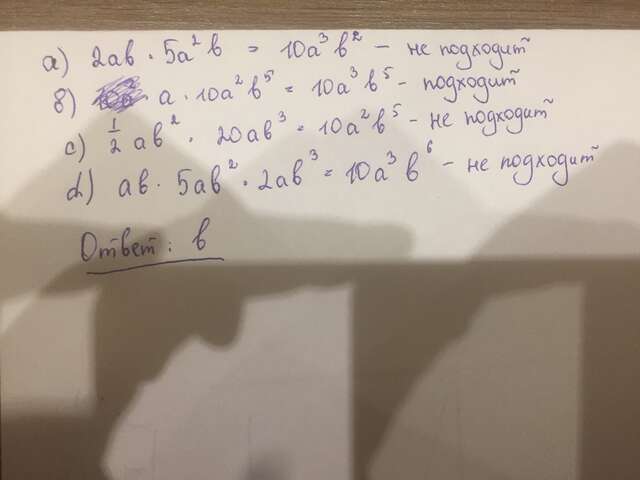 а) 2ab · 5a²b = 10a³b² – не подходит
б) a · 10a²b⁵ = 10a³b⁵ – подходит
c) 1/2 ab² · 20ab³ = 10a²b⁵ – не подходит
d) ab · 5ab² · 2ab³ = 10a³b⁶ – не подходит
Ответ: b